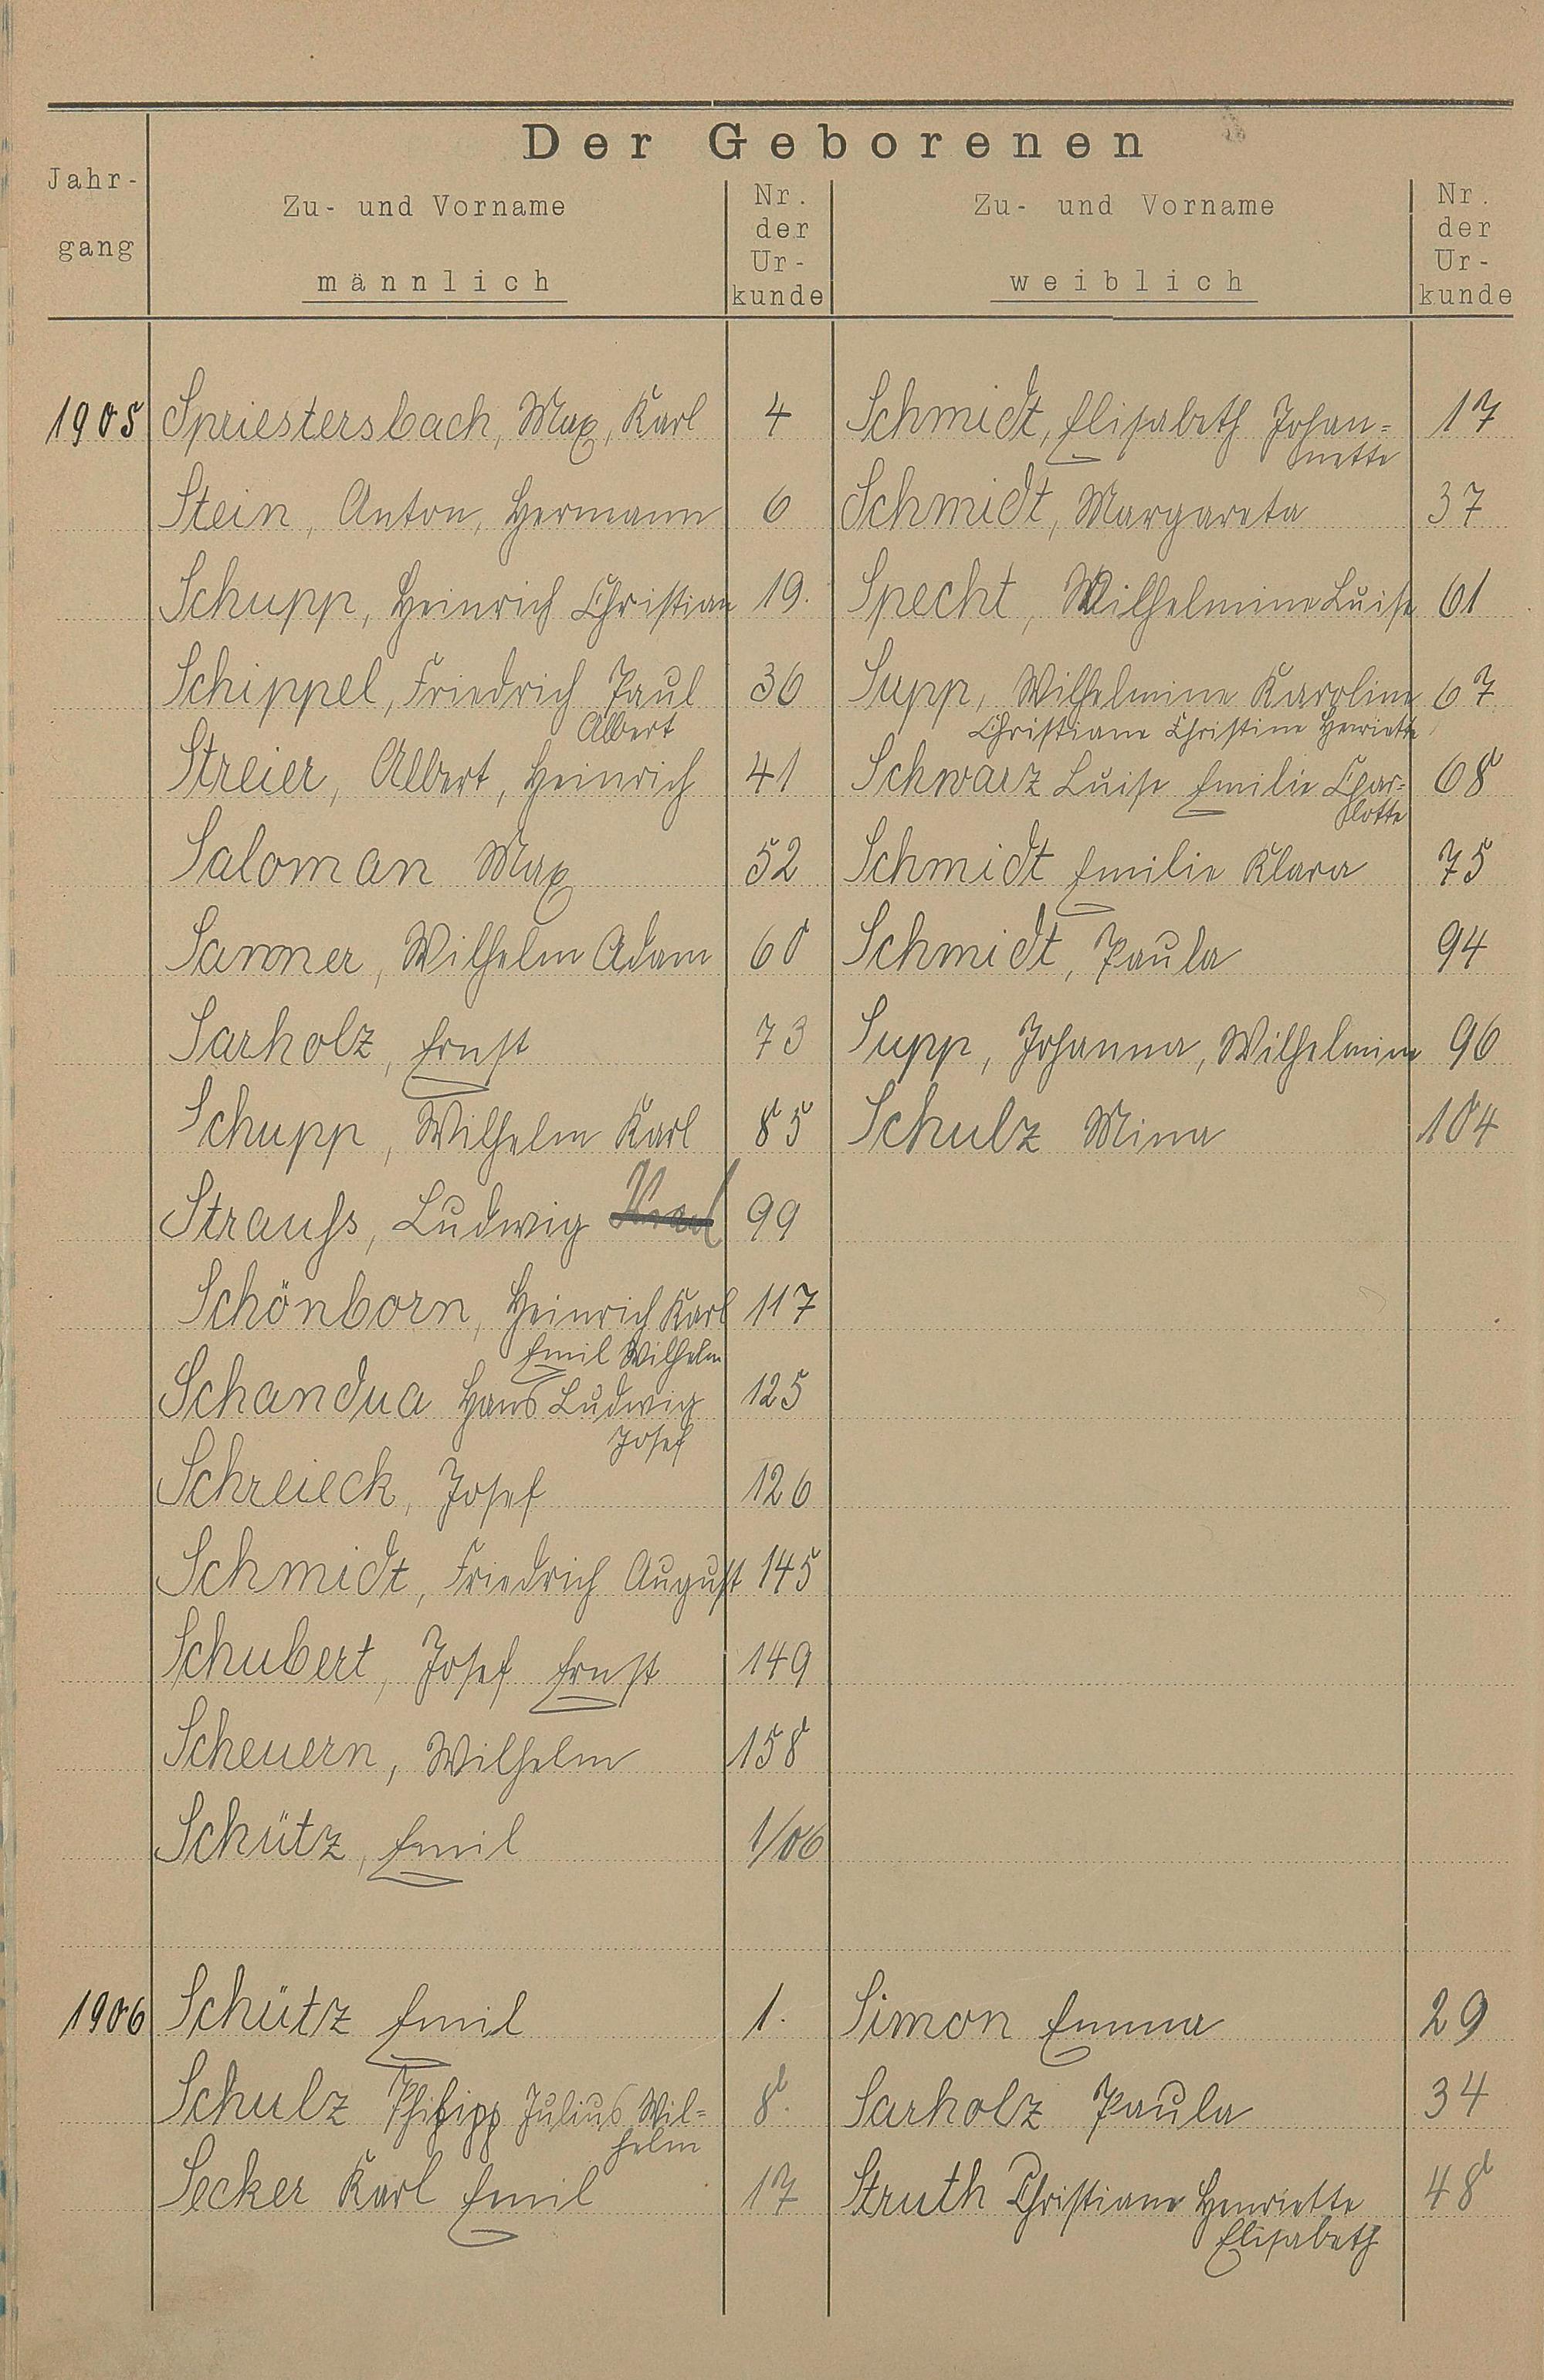 Der Geborenen
Jahr-
gang
Zu- und Vorname
männlich
Nr.
der
Ur-
kunde
Zu- und Vorname
weiblich
Nr.
der
Ur-
kunde
1905 Spriestersbach, Max, Karl 4 Schmidt, Elisabeth Johan=
nette 17
Stein, Anton, Hermann 6 Schmidt, Margareta 37
Schupp, Heinrich Christian 19. Specht, Wilhelmine Luise 61
Schippel, Friedrich Paul 36 Supp, Wilhelmine Karoline 67
Albert Christiane Christine Henriette
Streier, Albert, Heinrich 41 Schwarz Luise Emilie Char=
lotte 68
Saloman Max 52 Schmidt Emilie Klara 75
Sanner, Wilhelm Adam 60 Schmidt, Paula 94
Sarholz, Ernst 73 Supp, Johanna, Wilhelmine 96
Schupp, Wilhelm Karl 85 Schulz Mina 104
Strauss, Ludwig 99
Schönborn, Heinrich Karl 117
Emil Wilhelm
Schandua Hans Ludwig 125
Josef
Schreieck, Josef 126
Schmidt, Friedrich August 145
Schubert, Josef Ernst 149
Scheuern, Wilhelm 158
Schütz, Emil 1/06
1906 Schütz Emil 1. Simon Emma 29
Schulz Philipp Julius Wil= 8. Sarholz Paula 34
helm
Secker Karl Emil 17 Struth Christiane Henriette 48
Elisabeth